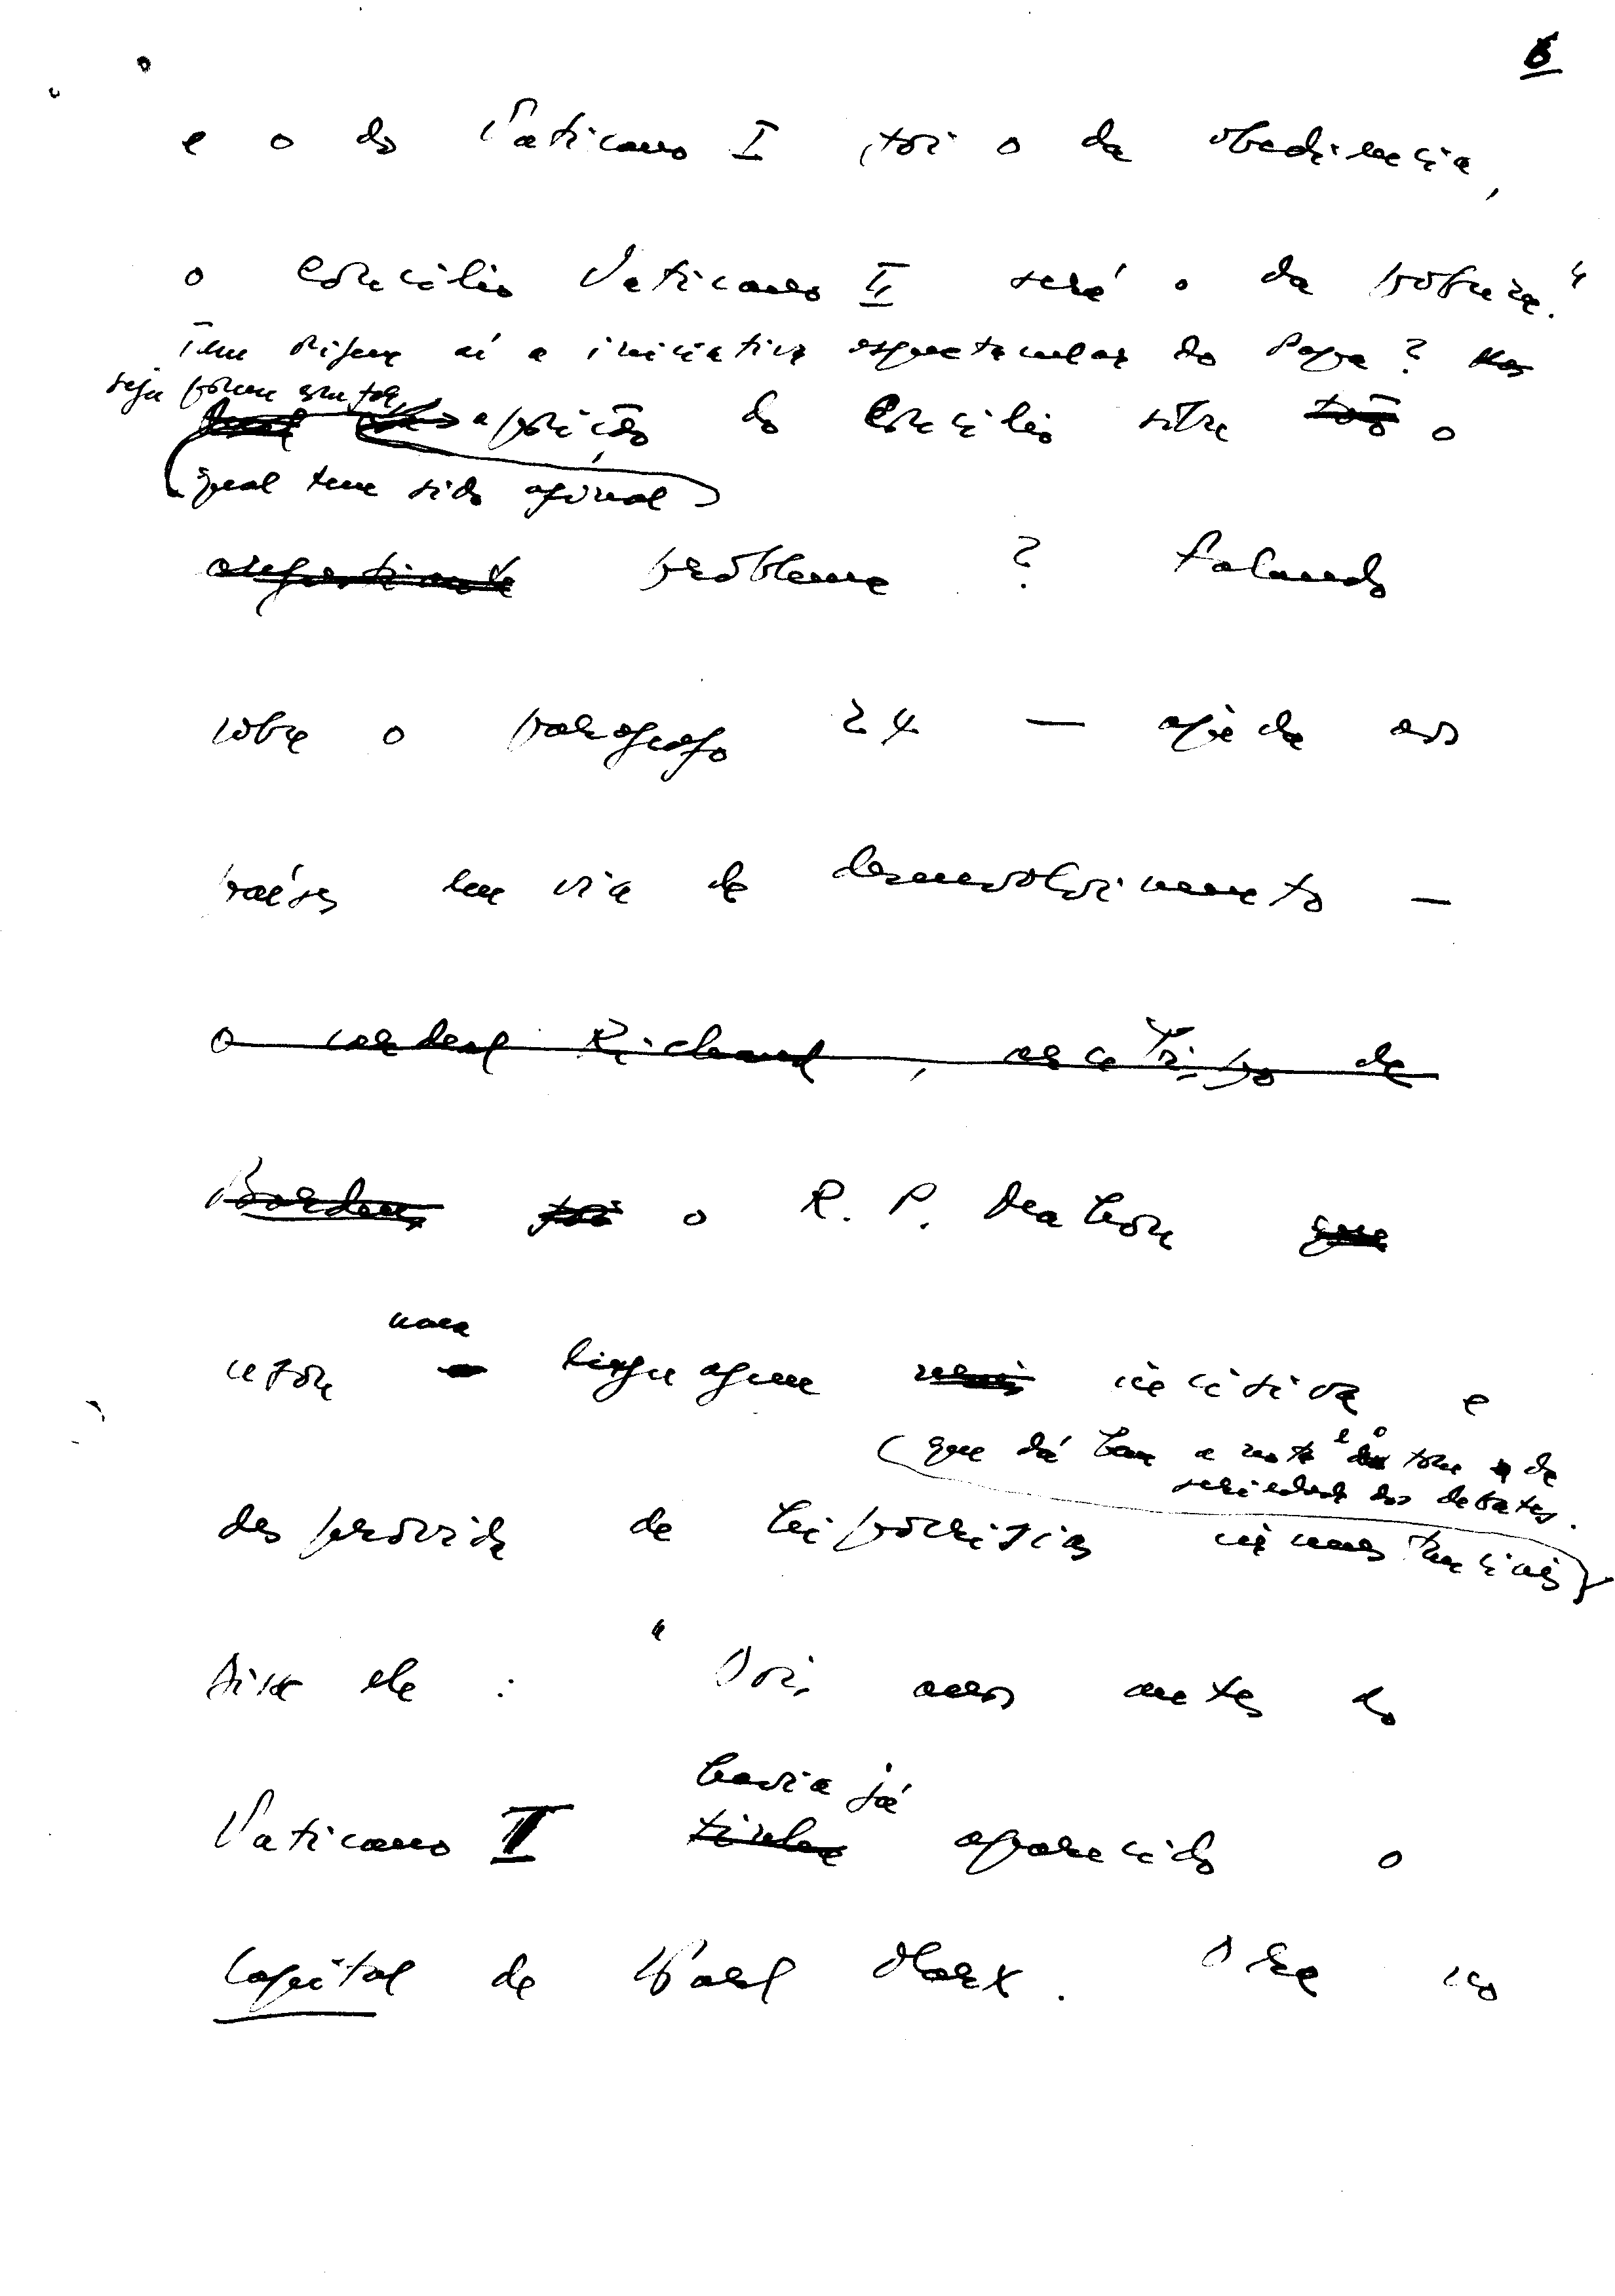 6
e o do Vaticano I foi o da obediencia,
o Concilio Vaticano II será o da pobreza."
Tem origem aí a iniciativa espectacular do Papa? Mas
seja porem
a posição do Concilio sôbre tão o
qual tem sido afinal
angustiante problema ? Falando
sobre o paragrafo 24 — ajuda aos
países em via de desenvolvimento —
o cardeal Richaud, arcebispo de
Bordeus foi o R. P. Mahon que
usou uma linguagem mais incisiva e
(que dá bem a nota e o tom da
seriedade dos debates.
desprovida de hipocrisias circunstanciais)
Disse ele : " Dois anos antes do
havia já
Vaticano I tinha aparecido o
Capital de Karl Marx. Ora no